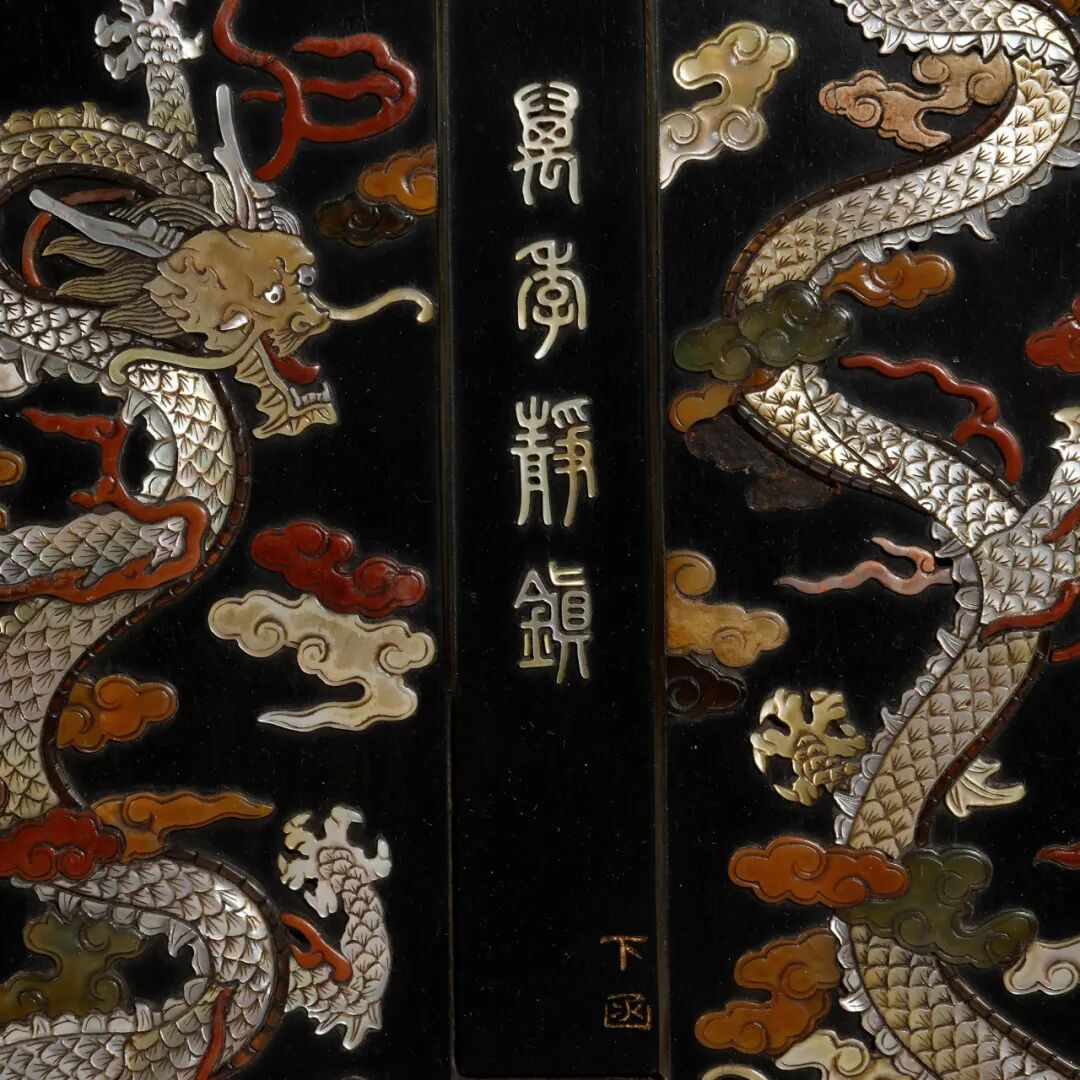 萬年靜鎮
下函